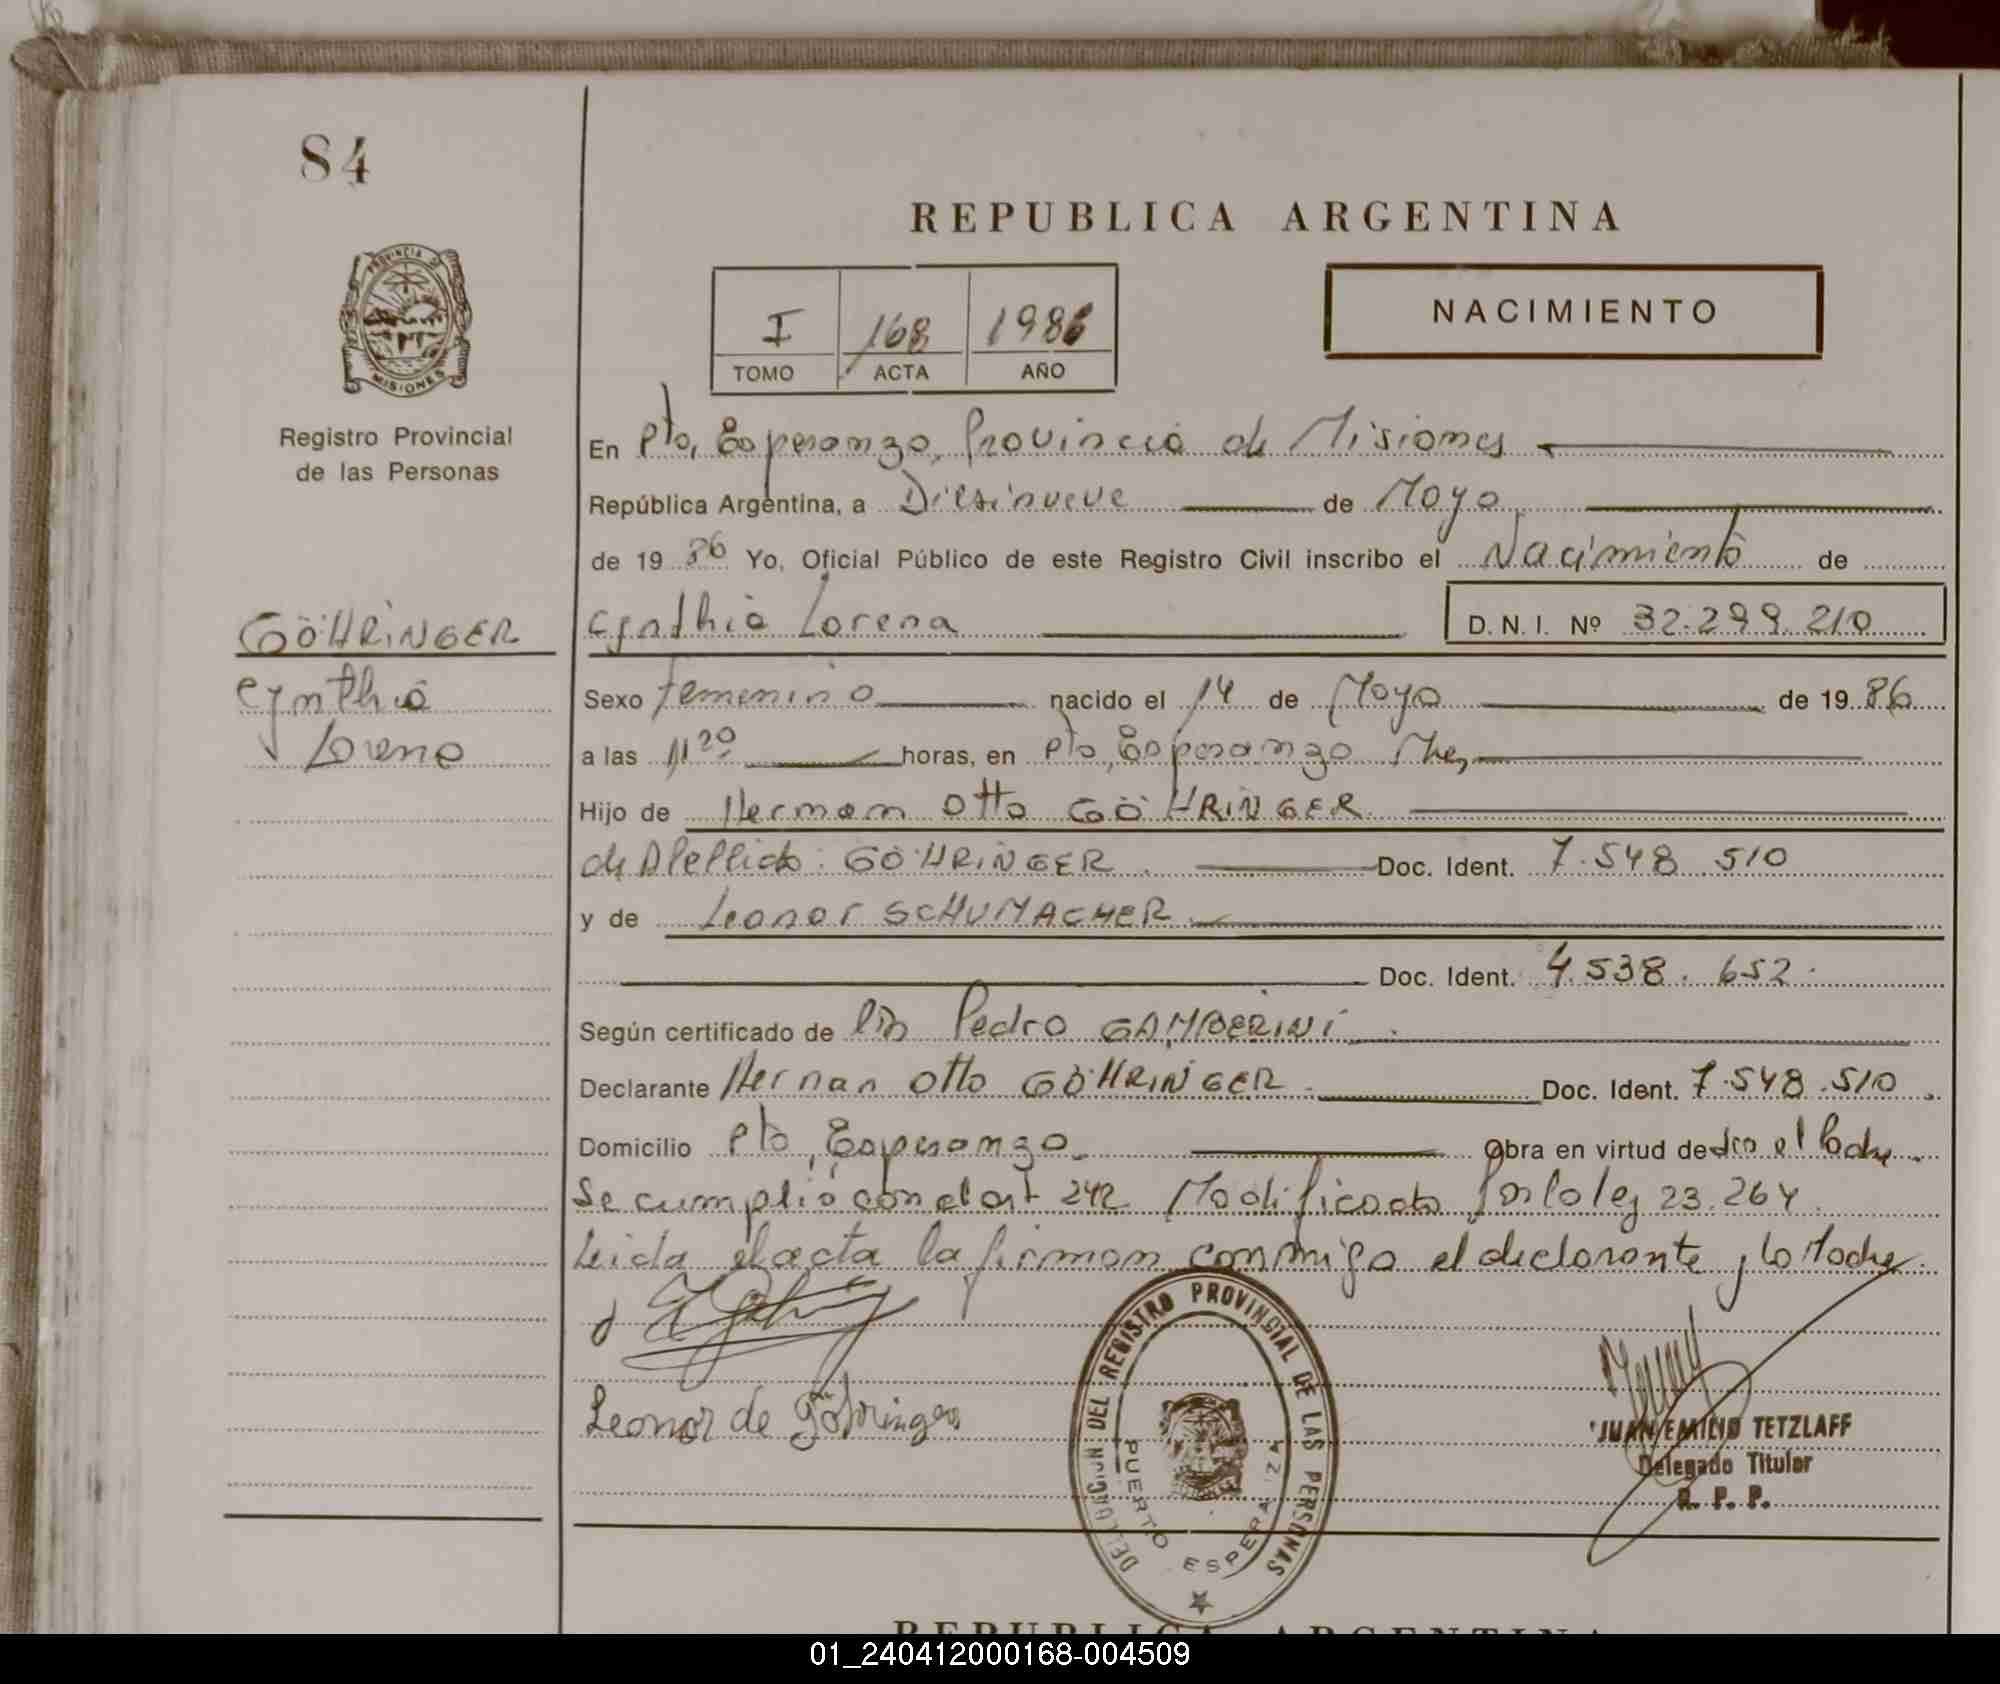 84
REPUBLICA ARGENTINA
PROVINCIA DE
MISIONES
Registro Provincial
de las Personas
I 168 1986
TOMO ACTA AÑO
NACIMIENTO
En Pto, Esperanza, Provincia de Misiones
República Argentina, a Diesinueve de Mayo
de 19 86 Yo, Oficial Público de este Registro Civil inscribo el Nacimiento de
GÖHRINGER
Cynthia Lorena D. N. I. Nº 32.299.210
Cynthia
Lorena
Sexo femenino nacido el 14 de Mayo de 19 86
a las 11 20 horas, en Pto, Esperanza Mnes,
Hijo de Herman Otto GÖHRINGER
de Apellido: GÖHRINGER Doc. Ident. 7.548.510
y de Leonor SCHUMACHER
Doc. Ident. 4.538.652.
Según certificado de Pedro GAMBERINI
Declarante Hernan Otto GÖHRINGER Doc. Ident. 7.548.510
Domicilio Pto, Esperanza Obra en virtud de el Padre
Se cumplió con el art 242 Modificado por la ley 23.264
Leida el acta la firman conmigo el declarante y la Madre
Leonor de Göhringer
DELEGACION DEL REGISTRO PROVINCIAL DE LAS PERSONAS
PUERTO ESPERANZA
JUAN EMILIO TETZLAFF
Delegado Titular
R. P. P.
REPUBLICA ARGENTINA
01_240412000168-004509